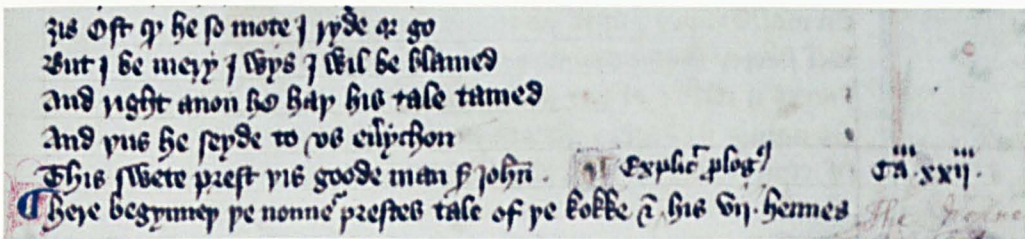 ȝis Ost qþ he so mote I ryde or go
But I be mery I wys I wil be blamed
And right anon he haþ his tale tamed
And þus he seyde to vs euẏchon
This swete prest þis goode man sͬ Joħn . Explic̄ ꝓlogꝰ Ca͞ . xxijͥͥͥ .
¶ here begynneþ þe nonne prestes tale of þe kokke & his vij . hennes The